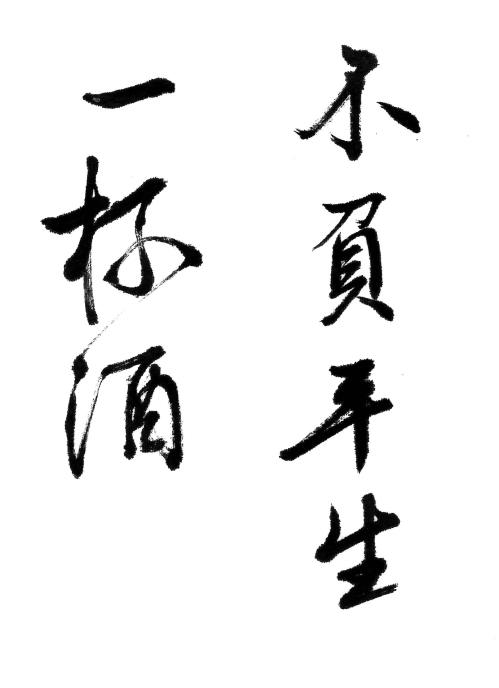 不負平生
一杯酒